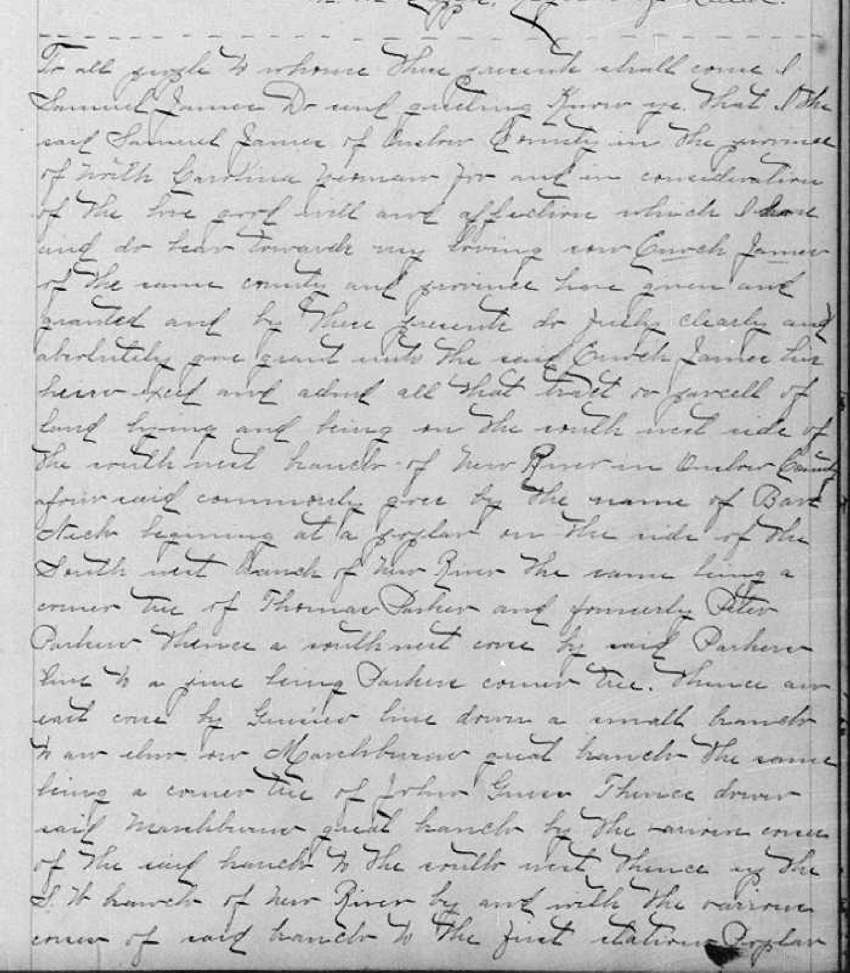 To all people to whome these presents shall come I
Samuel James Do send greeting Know ye that I the
said Samuel James of Onslow County in the province
of North Carolina yeoman for and in consideration
of the love good will and affection which I have
and do bear towards my loving son Enoch James
of the same county and province have given and
granted and by these presents do fully clearly and
absolutely give grant unto the said Enoch James his
heirs exed and admd all that tract or parcell of
land lying and being on the south west side of
the south west branch of New River in Onslow County
afour said commonly goes by the name of Bare
Neck begining at a poplar on the side of the
South west Branch of New River the same being a
corner tree of Thomas Parker and formerly Peter
Parkers thence a south west corse by said Parkers
line to a pine being Parkers corner tree. Thence an
east corse by line down a small branch
to an elm on Marshburns great branch the same
being a corner tree of John Thence down
said Marshburns great branch by the various corses
of the said branch to the south west thence up the
S. W branch of New River by and with the various
corses of said branch to the first station Poplar